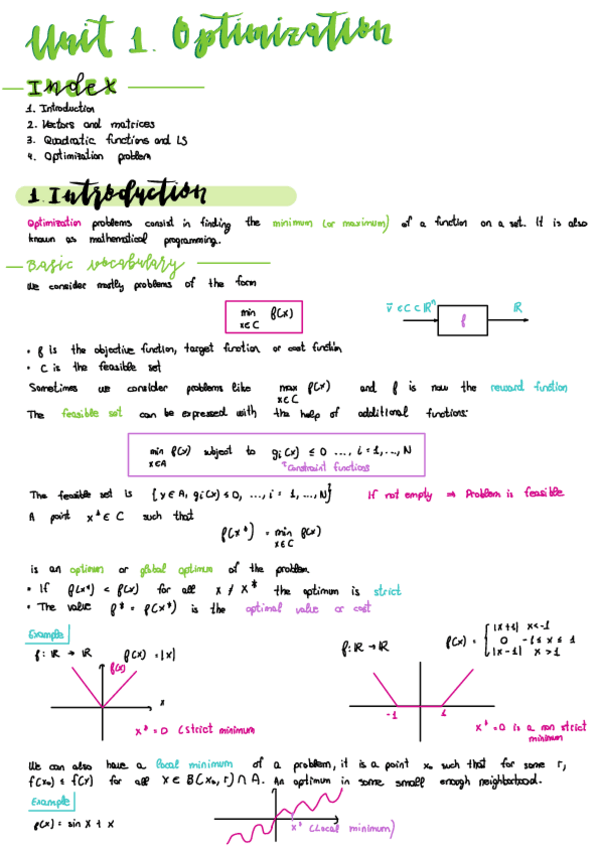 Unit 1. Optimization
Index
1. Introduction
2. Vectors and matrices
3. Quadratic functions and LS
4. Optimization problem
1. Introduction
Optimization problems consist in finding the minimum (or maximum) of a function on a set. It is also
known as mathematical programming.
Basic vocabulary
We consider mostly problems of the form
min f(x)
x∈C
v⃗ ∈ C ⊂ ℝⁿ
f
ℝ
• f is the objective function, target function or cost function
• C is the feasible set
Sometimes we consider problems like max f(x) and f is now the reward function
x∈C
The feasible set can be expressed with the help of additional functions:
min f(x) subject to gi(x) ≤ 0 ..., i = 1,..., N
x∈A
Constraint functions
The feasible set is {x∈A, gi(x) ≤ 0, ..., i = 1, ..., N} If not empty ⇒ Problem is feasible
A point x* ∈ C such that
f(x*) = min f(x)
x∈C
is an optimum or global optimum of the problem
• If f(x*) < f(x) for all x ≠ x* the optimum is strict
• The value f* = f(x*) is the optimal value or cost
Example
f: ℝ → ℝ f(x) = |x|
f(x)
x
x* = 0 (strict minimum
f: ℝ → ℝ
f(x) = { |x+1| x<-1
0 -1 ≤ x ≤ 1
|x-1| x>1
-1
1
x* = 0 is a non strict
minimum
We can also have a local minimum of a problem, it is a point x₀ such that for some r,
f(x₀) ≤ f(x) for all x ∈ B(x₀, r) ∩ A. An optimum in some small enough neighborhood.
Example
f(x) = sin x + x
x* (Local minimum)